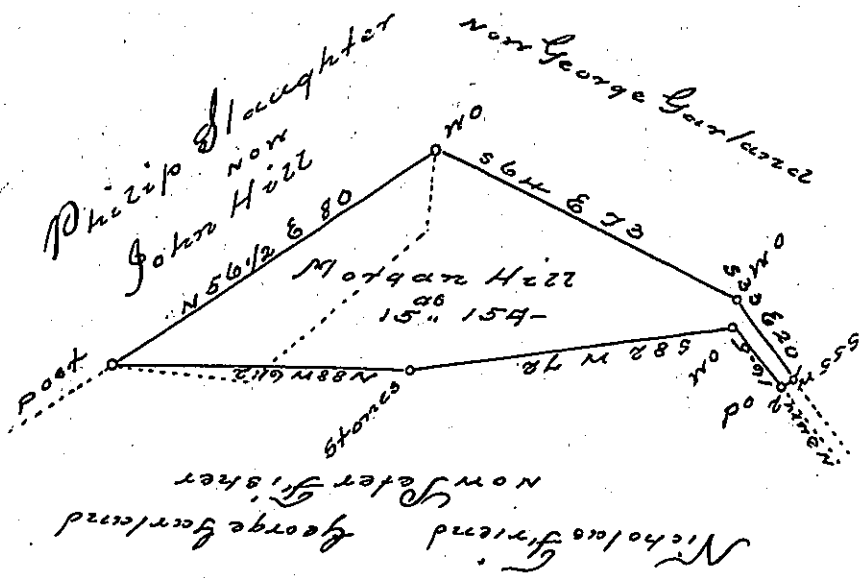 Philip Slaughter
now
John Hill
now George Garland
WO
N 56 1/2 E 80
S 64 E 73
Morgan Hill
ac
15 " 154
WO
S 33 E 20
S 55 W
post
N 88 W 61 1/2
Stones
S 82 W 72
WO
Po
now Peter Fisher
Nicholas Friend
George Garland